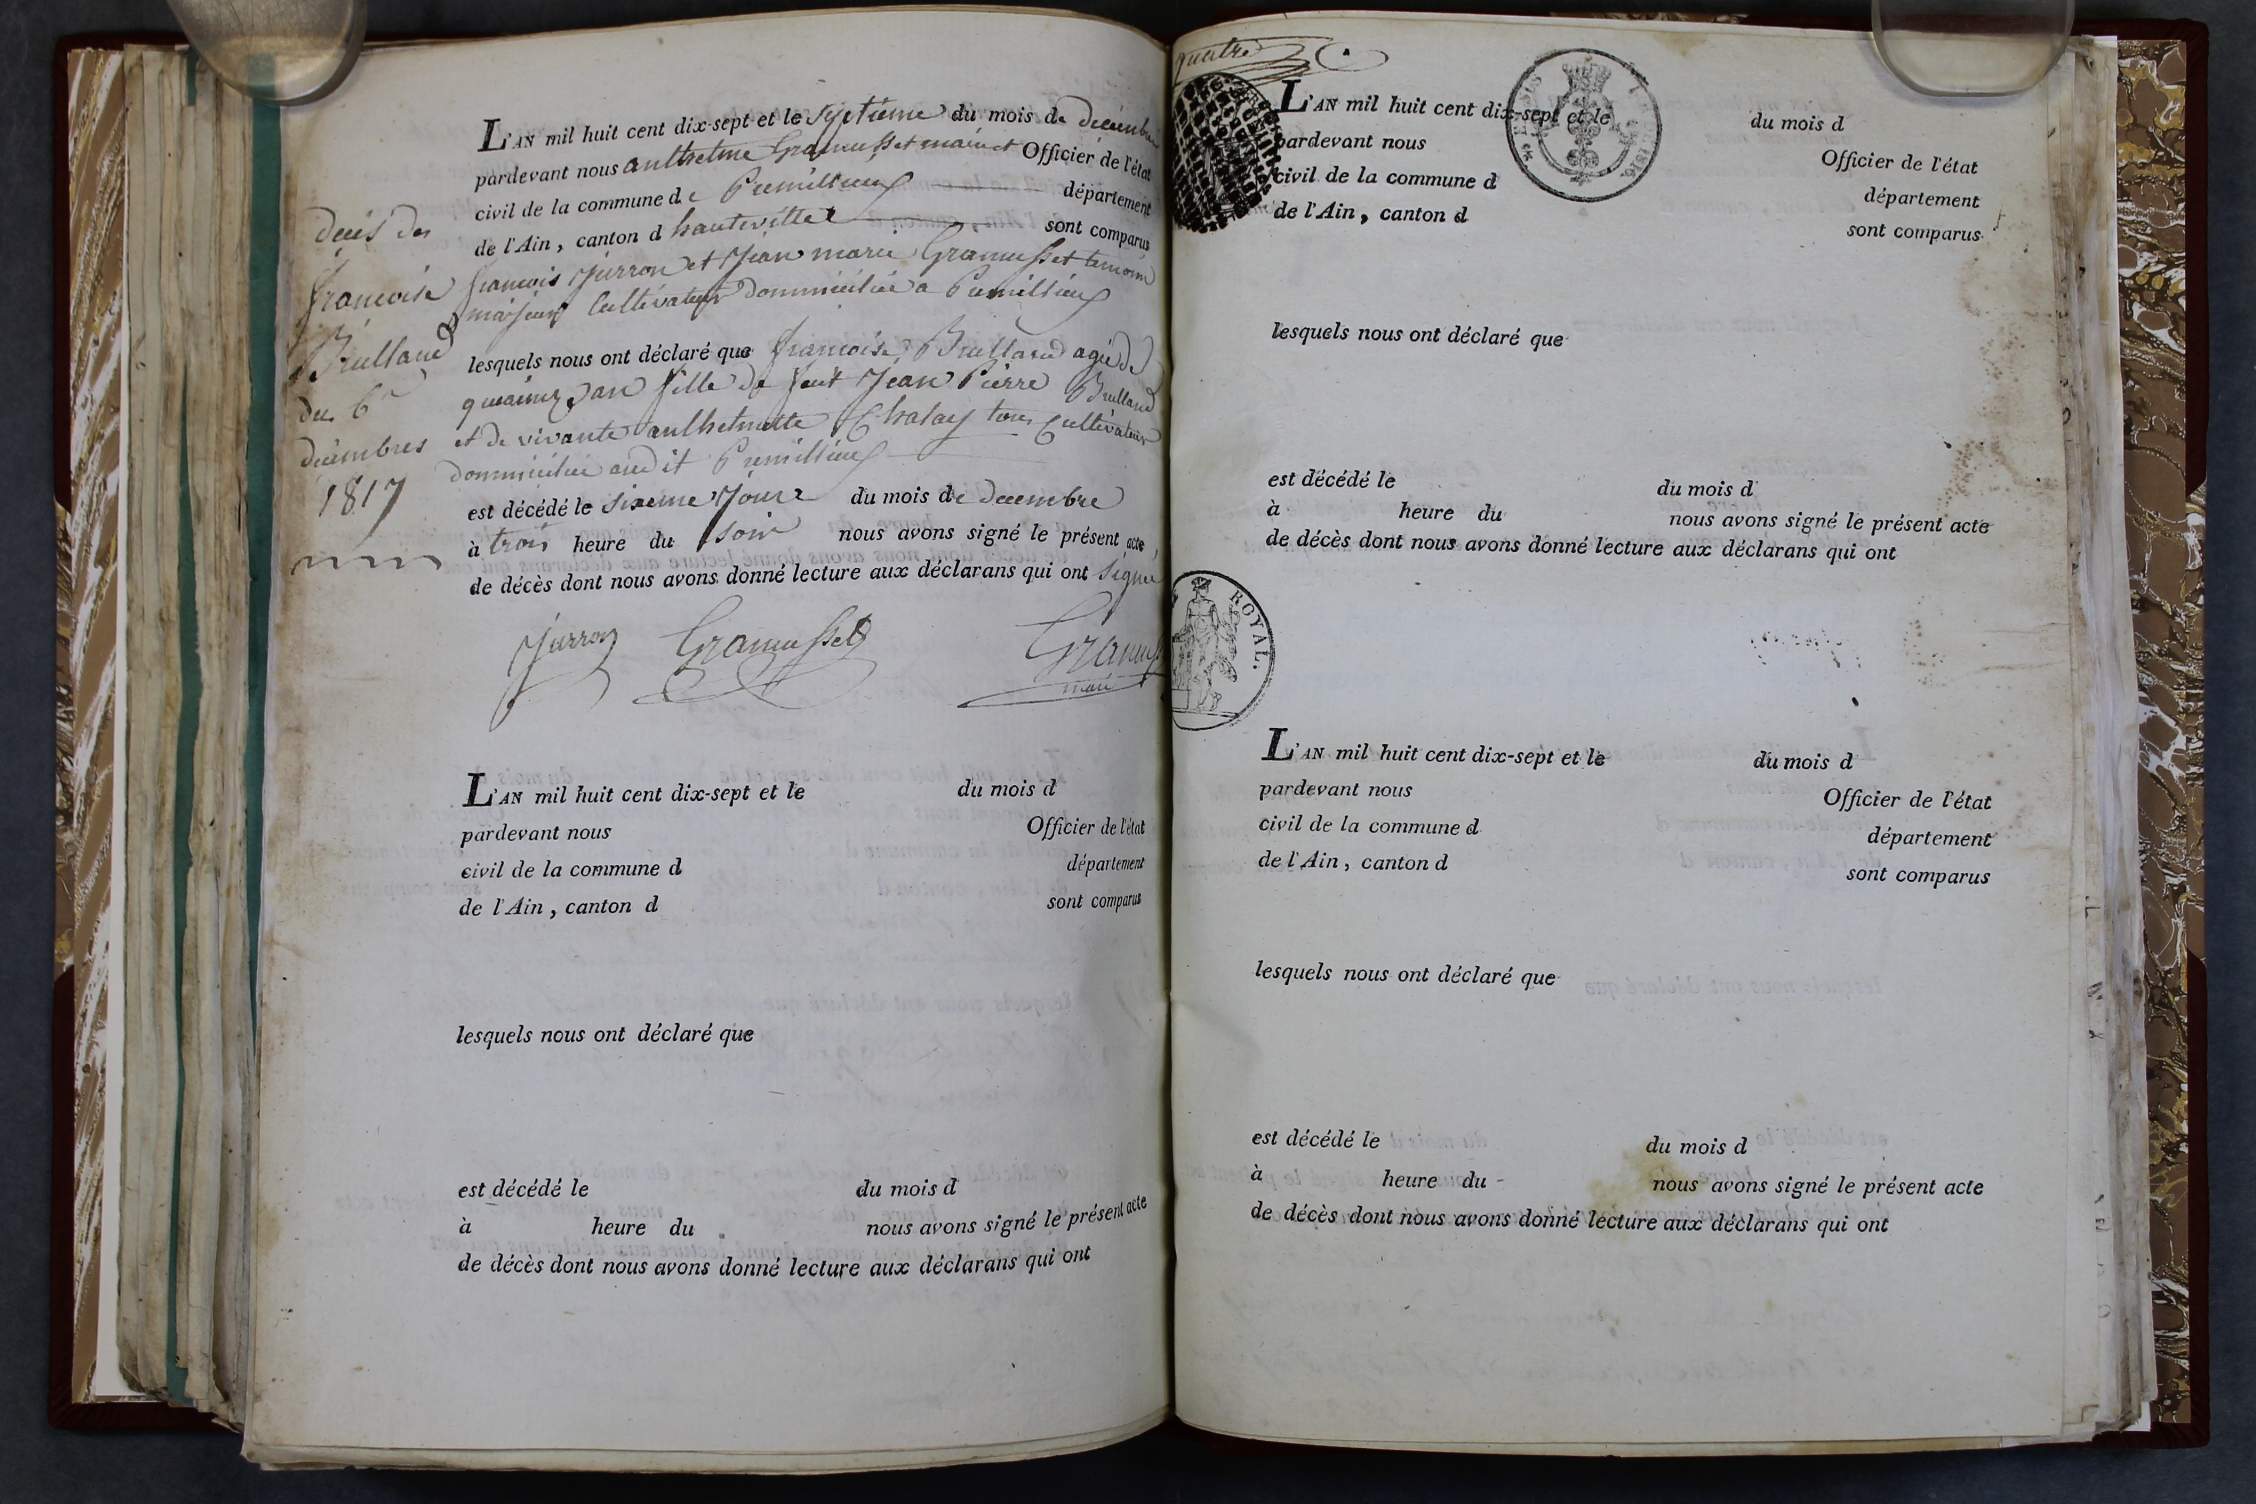 décés de
francoise
Brulland
du 6e
décembres
1817
L'AN mil huit cent dix-sept et le septieme du mois de décembre
pardevant nous anthelme Gramusset maire et Officier de l'état
civil de la commune de Premillieu département
de l'Ain, canton d hauteville sont comparus
francois Jurron et Jean marie Gramusset temoin
majeur Cultivateur dommicilié a Premillieu
lesquels nous ont déclaré que francoise Brulland agée de
quainze an fille de feut Jean Pierre Brulland
et de vivante anthelmette Chalay tous Cultivateur
dommicilié audit Premillieu
est décédé le sixeme Jour du mois de decembre
à trois heure du soir nous avons signé le présent acte,
de décès dont nous avons donné lecture aux déclarans qui ont signé
Jurron Gramusset Gramuss
maire
L'AN mil huit cent dix-sept et le du mois d
pardevant nous Officier de l'état
civil de la commune d département
de l'Ain, canton d sont comparus
lesquels nous ont déclaré que
est décédé le du mois d
à heure du nous avons signé le présent acte
de décès dont nous avons donné lecture aux déclarans qui ont
quatre
L'AN mil huit cent dix-sept et le du mois d
pardevant nous Officier de l'état
civil de la commune d département
de l'Ain, canton d sont comparus
lesquels nous ont déclaré que
est décédé le du mois d
à heure du nous avons signé le présent acte
de décès dont nous avons donné lecture aux déclarans qui ont
ROYAL.
L'AN mil huit cent dix-sept et le du mois d
pardevant nous Officier de l'état
civil de la commune d département
de l'Ain, canton d sont comparus
lesquels nous ont déclaré que
est décédé le du mois d
à heure du nous avons signé le présent acte
de décès dont nous avons donné lecture aux déclarans qui ont